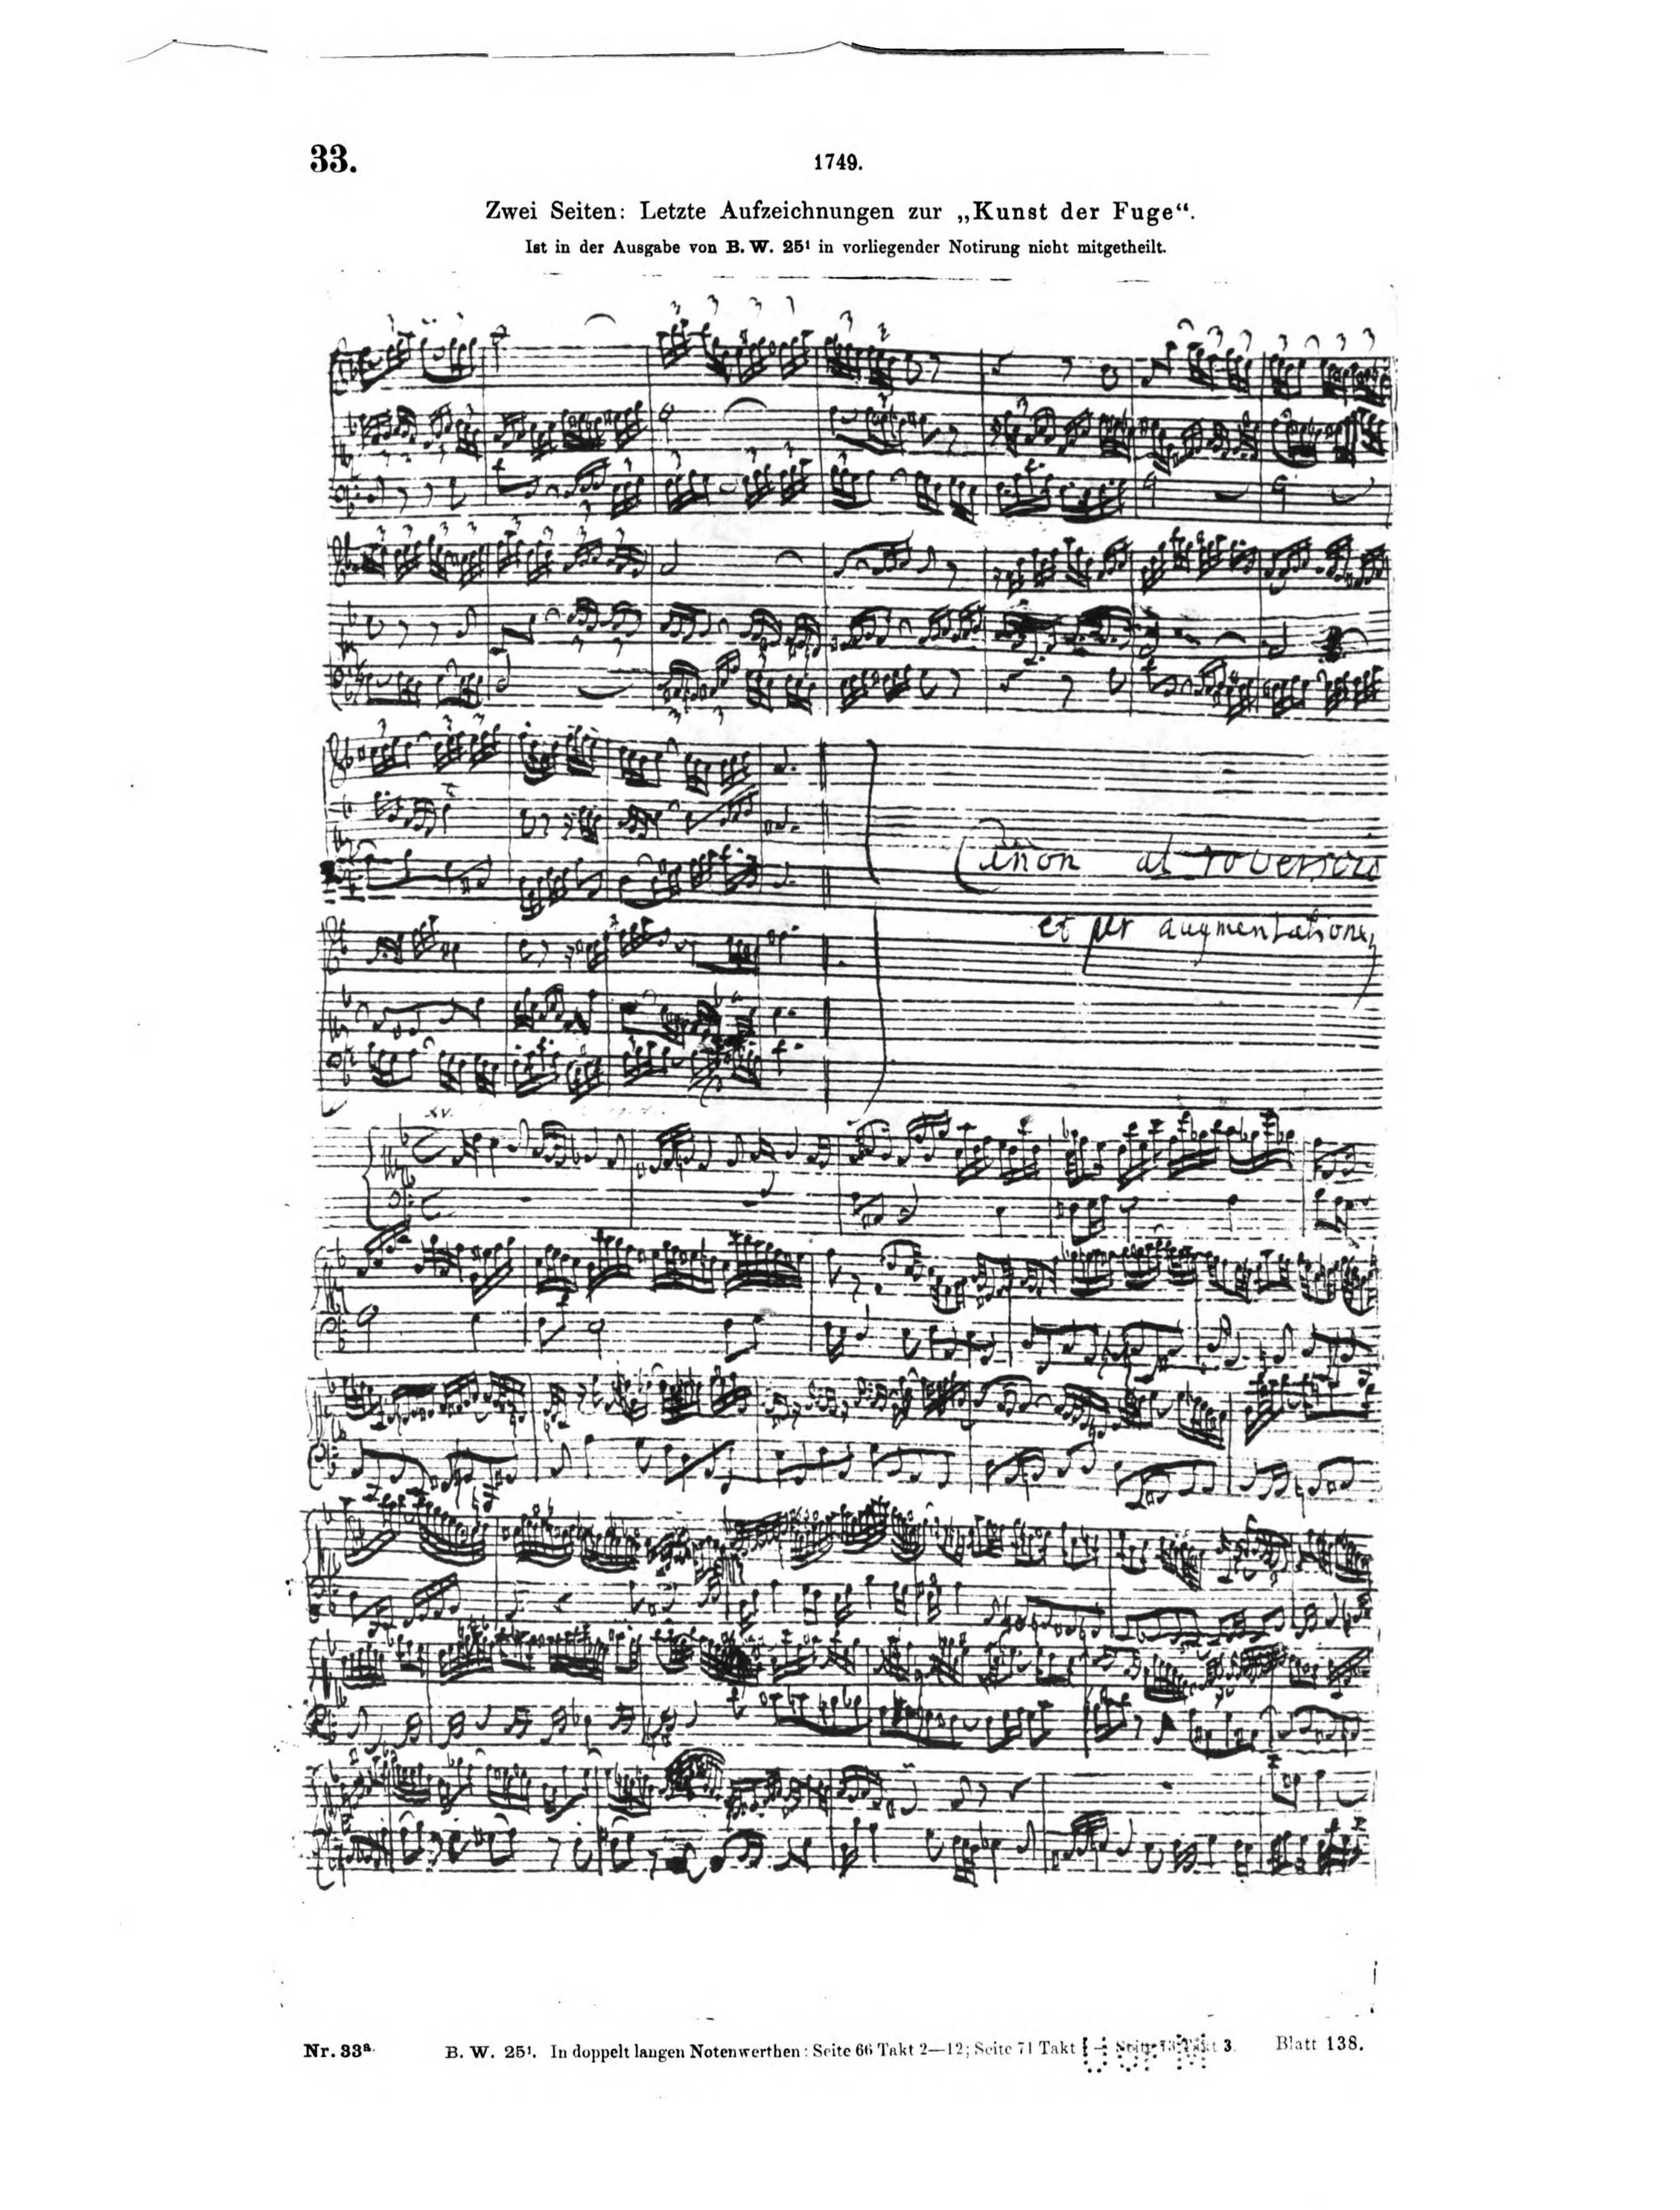 33.
1749.
Zwei Seiten: Letzte Aufzeichnungen zur „Kunst der Fuge“.
Ist in der Ausgabe von B. W. 25¹ in vorliegender Notirung nicht mitgetheilt.
Canon al roverscio
et per augmentationem
XV.
Nr. 33ᵃ.
B. W. 25¹. In doppelt langen Notenwerthen: Seite 66 Takt 2—12; Seite 71 Takt 1 — Seite 73 Takt 3.
Blatt 138.